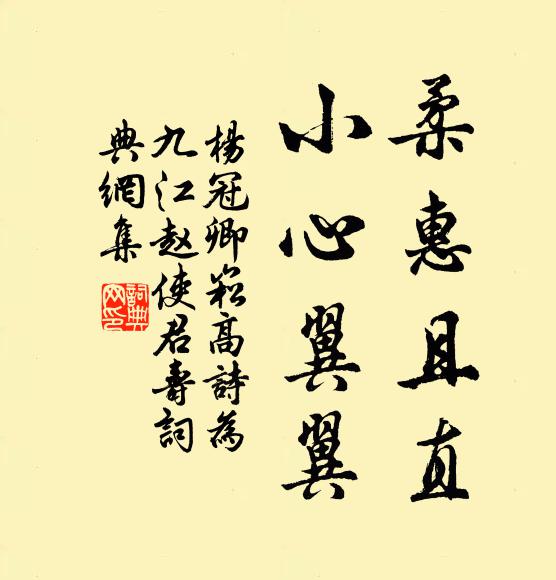 柔惠且直
小心翼翼
楊冠卿崧高詩為
九江赵使君壽詞
典網集
詞典
网印